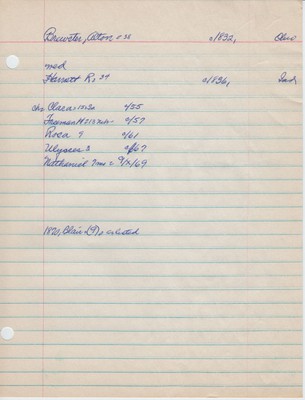 Brewster, Aton 38 c/1832, Ohio
med
Harriett R, 34 c/1836, Ind
chs Clara, 15 Ia c/55
Freeman 14 c/57
Rosa 9 c/61
Ulysses 3 c/67
Nathaniel 9mo = 9/x/69
1870, Blair (9), as listed